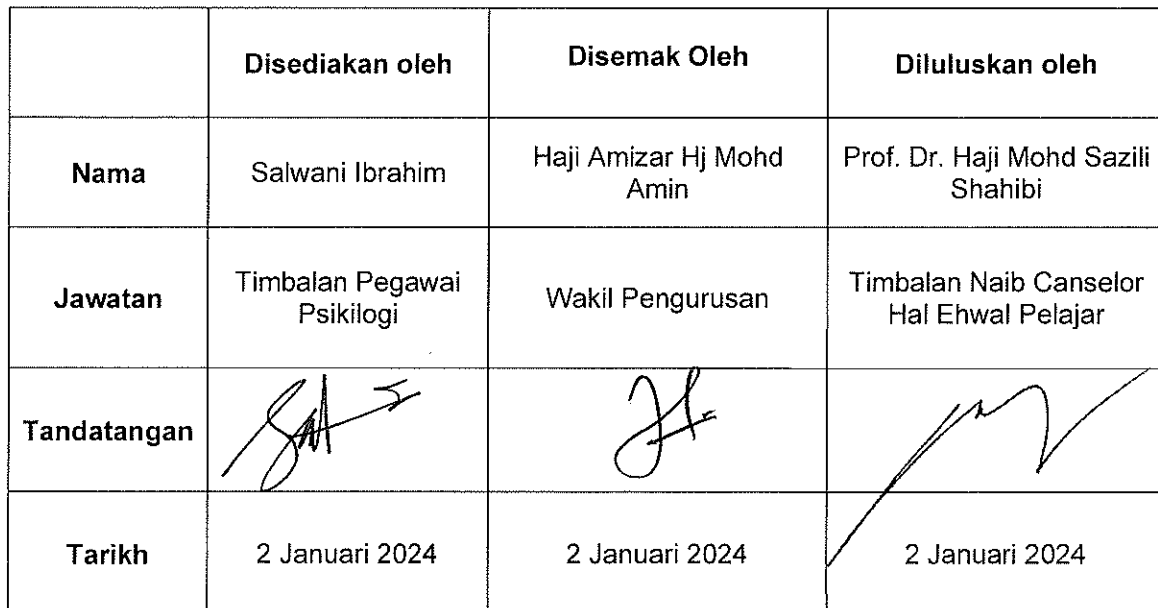 Disediakan oleh
Disemak Oleh
Diluluskan oleh
Nama
Salwani Ibrahim
Haji Amizar Hj Mohd
Amin
Prof. Dr. Haji Mohd Sazili
Shahibi
Jawatan
Timbalan Pegawai
Psikilogi
Wakil Pengurusan
Timbalan Naib Canselor
Hal Ehwal Pelajar
Tandatangan
Tarikh
2 Januari 2024
2 Januari 2024
2 Januari 2024